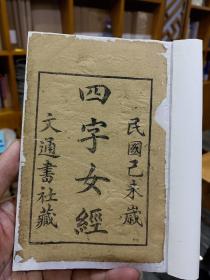 民國己未歲
四字女經
文通書社藏